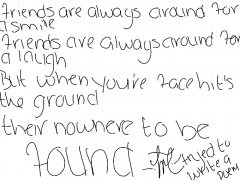 friends are always around for
a smile
friends are always around for
a laugh
But when you're face hits
the ground
their nowhere to be
found
tried to
write a
poem